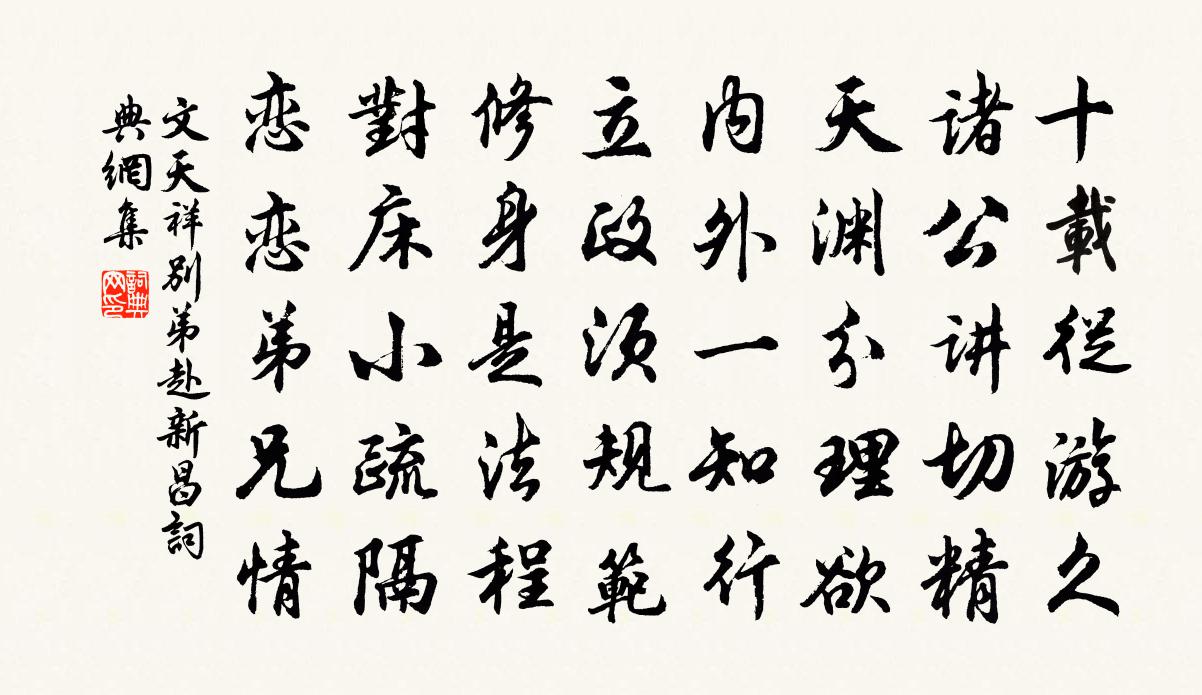 十載從游久
諸公讲切精
天渊分理欲
内外一知行
立政須規範
修身是法程
對床小疏隔
恋恋弟兄情
文天祥別弟赴新昌詞
典網集
詞典
网印